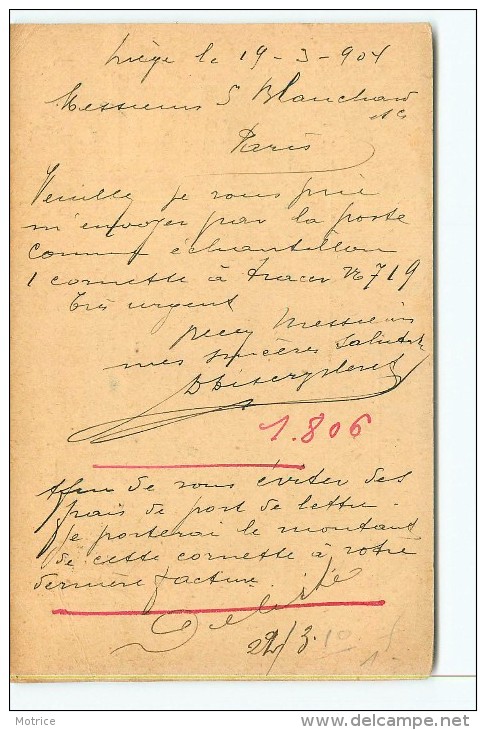 Liège le 19-3-904
Messieurs S Blanchard
et Cie
Paris
Veuillez je vous prie
m'envoyer par la poste
comme échantillon
1 cornette à tracer No 719
Très urgent
Messieurs
mes sincères salutat
1.806
Afin de vous éviter des
frais de port de lettre
je porterai le montant
de cette cornette à votre
dernière facture.
Débité
22/3.
Motrice
delcampe.net